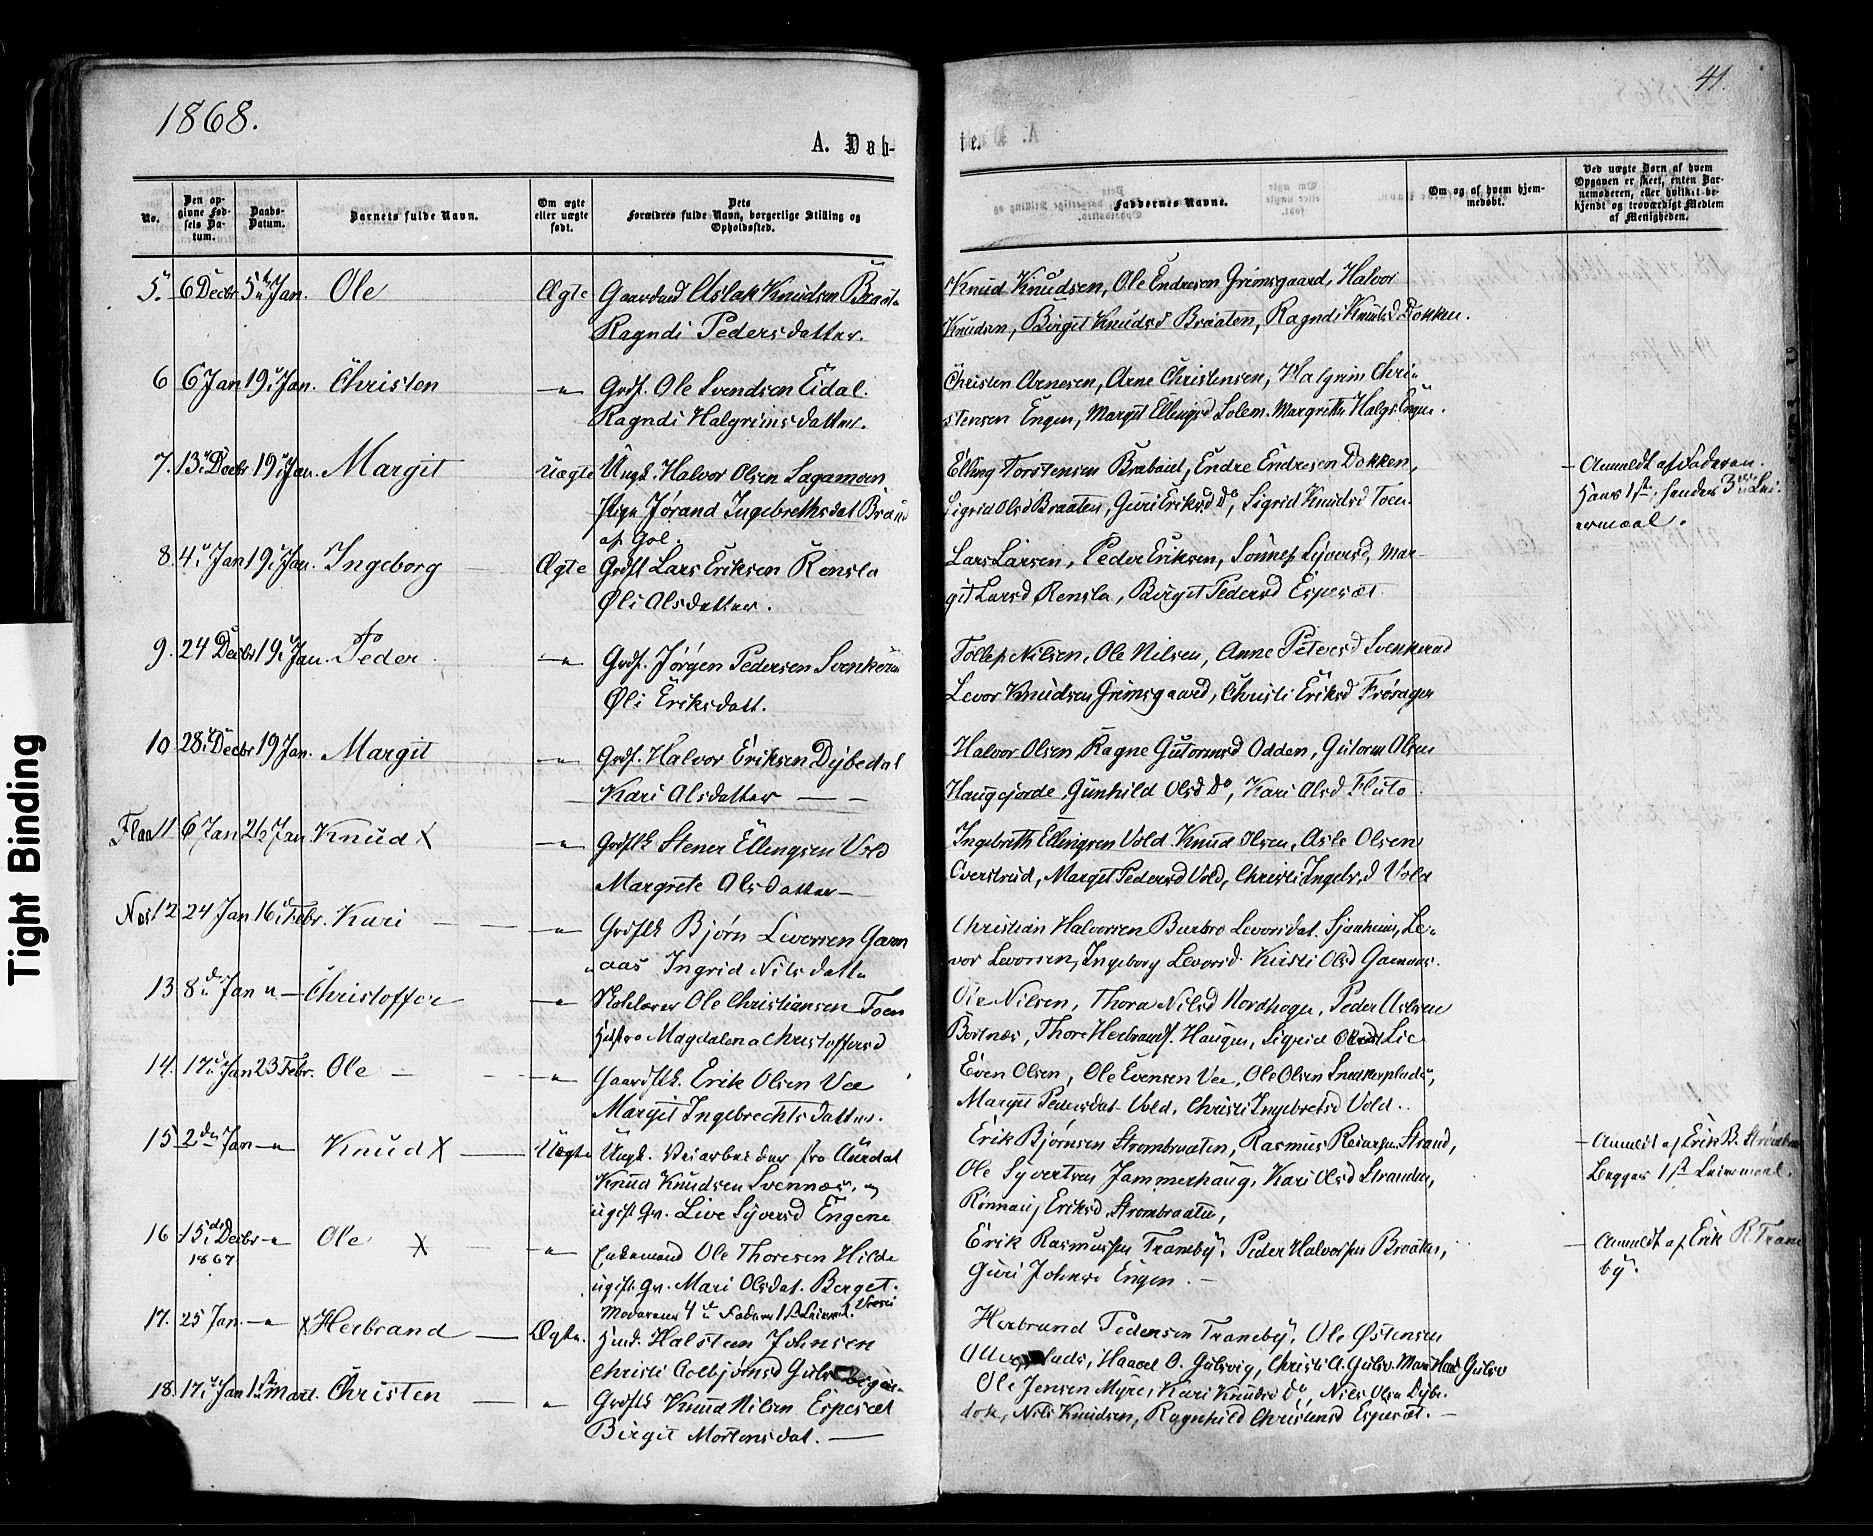 1868.
41.
A. Dåb-
te.
No.
Den op-
givne Fød-
sels Da-
tum.
Daabs-
Datum.
Barnets fulde Navn.
Om ægte
eller uægte
født.
Dets
Forældres fulde Navn, borgerlige Stilling og
Opholdssted.
Faddernes Navne.
Om og af hvem hjem-
medøbt.
Ved uægte Børn af hvem
Opgaven er skeet, enten Bar-
nemoderen, eller hvilket be-
kjendt og troværdigt Medlem
af Menigheden.
5. 6 Decbr 5 Jan. Ole Ægte Gaardmd Aslak Knudsen Braata
Ragndi Pedersdatter.
Knud Knudsen, Ole Endresen Grimsgaard, Halvor
Knudsen, Birgit Knudsd Braaten, Ragndi Knudsd Dokken.
6 6 Jan 19 Jan. Christen –"– Grdf. Ole Svendsen Eidal.
Ragndi Halgrimsdatter.
Christen Arnesen, Arne Christensen, Halgrim Chri-
stensen Engen, Margit Ellingsd Solem. Margrethe Halgs. Engen.
7. 13 Decbr 19 Jan. Margit Uægte Ungk. Halvor Olsen Sagamoen
Pige Jørand Ingebrethsdat Braata
af Gol.
Elling Torstensen Brabæit, Endre Endresen Dokken,
Sigrid Olsd Braaten, Guri Eriksd Do, Sigrid Knudsd Toen
Anmeldt af Faderen.
Hans 1ste, hendes 3die Lei-
ermaal.
8. 4 Jan 19 Jan. Ingeborg Ægte Grdfk Lars Eriksen Rensla
Øli Alsdatter.
Lars Larsen, Peder Eriksen, Sønnef Syversd, Mar-
git Larsd Rensla, Birgit Pedersd Espeset
9. 24 Decbr 19 Jan. Peder –"– Grdf. Jørgen Pedersen Svenkerud
Øli Eriksdatt.
Tollef Nilsen, Ole Nilsen, Anne Petersd Svenkerud
Levor Knudsen Grimsgaard, Christi Eriksd Frøsager
10 28 Decbr 19 Jan. Margit –"– Grdf. Halvor Eriksen Dybedal
Kari Alsdatter — —
Halvor Olsen, Ragne Gutormsd Odden, Gutorm Olsen
Haugejorde, Gunhild Olsd Do, Kari Alsd Fluto.
Flaa 11 6 Jan 26 Jan. Knud X –"– Grdfk Stener Ellingsen Vold
Margrete Olsdatter —
Ingebreth Ellingsen Vold. Knud Olsen, Asle Olsen
Cverstrud, Margit Pedersd Vold, Christi Ingebr.d Vold
Nes 12 24 Jan 16 Febr. Kari – –"– Grdfk Bjørn Levorsen Garn
aas Ingrid Nilsdatter
Christian Halvorsen Burbro Levorsdat. Sjanheim, Le-
vor Levorsen, Ingeborg Levorsd. Kirsti Olsd Garnaas.
13 8de Jan " — Christoffer –"– Skolelærer Ole Christiansen Toen
Hustro Magdalena Christoffersd
Ole Nilsen, Thora Nilsd Nordhagen, Peder Aslesen
Børtnæs, Thore Herbrands. Haugen, Sigrid Lie
14. 17 Jan 23 Febr. Ole – –"– Gaardfk. Erik Olsen Vee
Margit Ingebrechtsdatter.
Even Olsen, Ole Evensen Vee, Ole Olsen
Margit Pedersdat Vold, Christi Ingebretsd Vold.
15 2den Jan –"– Knud X — Uægte Ungk. Veiarbeider fra Aurdal
Knud Knudsen Svennæs, og
ugift Qv. Live Syversd Engene
Erik Bjørnsen Strømbraaten, Rasmus Strand,
Ole Syvertsen Jammerhaug, Kari Olsd Stranden,
Rønnaug Eriksd Strømbraaten,
Anmeldt af Erik B. Strømbra
Begges 1ste Leiermaal.
16 15de Decbr –"– Ole X — –"– Enkemand Ole Thoresen Hilde
1867
ugift Qv. Mari Olsdat. Berget.
Moderens 4de Faderens 1ste Leierml.
Erik Rasmussen Traneby, Peder Halvorsen Braaten,
Guri Johnsd Engen. –
Anmeldt af Erik R. Trane
by.
17. 25 Jan. –"– X Herbrand — Ægte. Husmd. Halsten Johnsen
Christi Colbjørnsd Gulsv
Herbrand Pedersen Traneby, Ole Østensen
Haavel O. Gulsvig, Christi A. Gulsv. Gulsv
18. 17 Jan 1ste Marts. Christen — " Grdfk Knud Nilsen Espeset
Birgit Mortensdat. —
Ole Jensen Myre, Kari Knudsd Do, Nils Olsen Dybe-
dok, Nils Knudsen, Ragnhild Christensd Espeset. –
Tight Binding